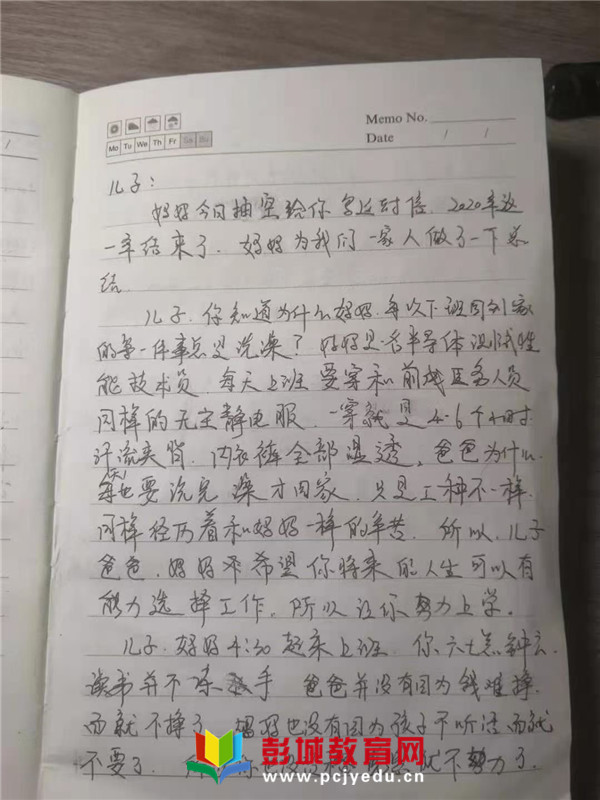 Memo No.
Mo Tu We Th Fr Sa Su
Date / /
儿子：
妈妈今日抽空给你写这封信，2020年这
一年结束了，妈妈为我们一家人做了一下总
结
儿子，你知道为什么妈妈每次下班回到家
的第一件事总是洗澡？妈妈是一名半导体测试性
能技术员，每天上班要穿和前线医务人员
同样的无尘静电服，一穿就是4-6个小时
汗流夹背，内衣裤全部湿透，爸爸为什么
每天也要洗完澡才回家，只是工种不一样，
同样经历着和妈妈一样的辛苦，所以，儿子
爸爸，妈妈不希望你将来的人生可以有
能力选择工作，所以让你努力上学。
儿子，妈妈4:30起来上班，你六七点钟去
读书并不冻手 爸爸并没有因为钱难挣，
而就不挣了，妈妈也没有因为孩子不听话而就
不要了，就不努力了。
彭城教育网
www.pcjyedu.cn